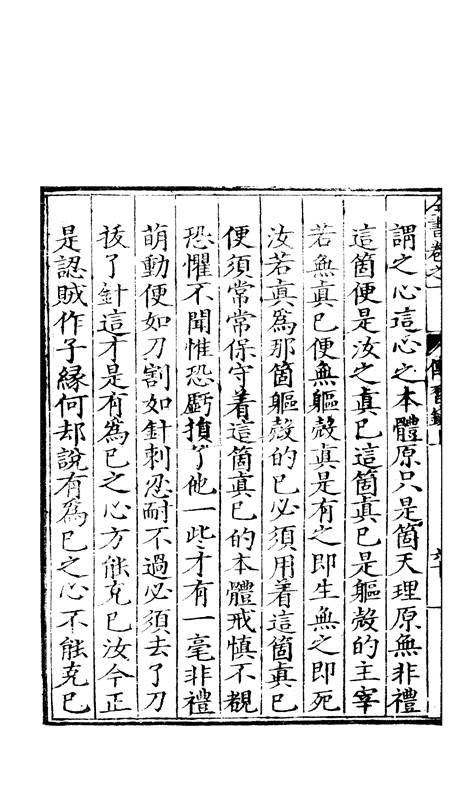 謂之心這心之本體原只是箇天理原無非禮
這箇便是汝之真己這箇真己是軀殼的主宰
若無真己便無軀殼真是有之即生無之即死
汝若真為那箇軀殼的己必須用着這箇真己
便須常常保守着這箇真己的本體戒慎不覩
恐懼不聞惟恐虧損了他一些才有一毫非禮
萌動便如刀割如針刺忍耐不過必須去了刀
拔了針這才是有為己之心方能克己汝今正
是認賊作子緣何却說有為己之心不能克己